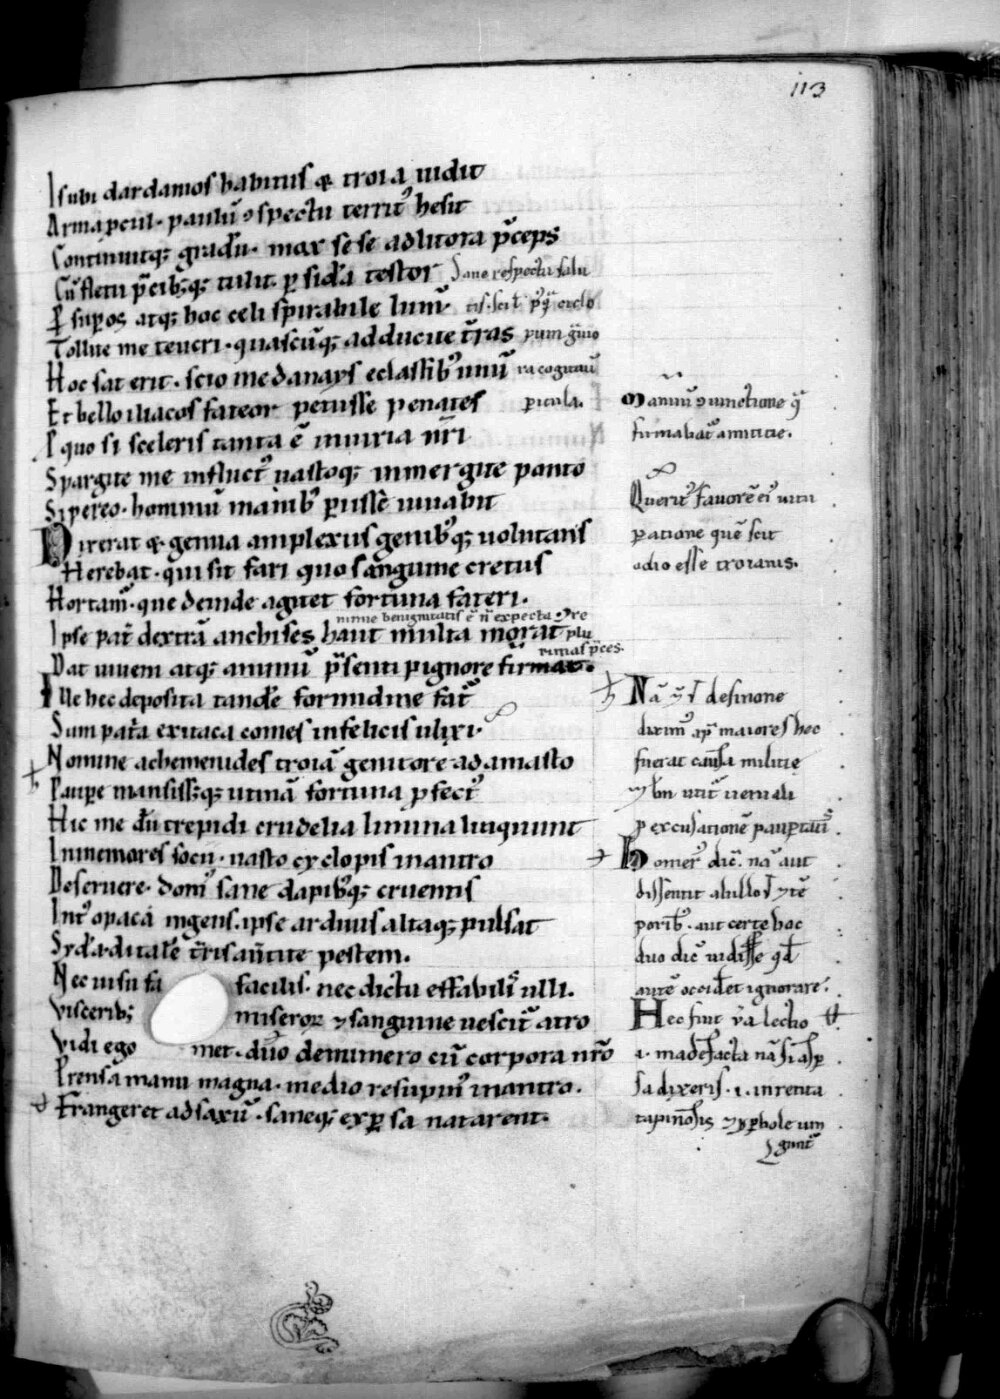 113
Isubi dardanios habitus & troia uidit
Arma pcul. paulū ɔspectu territ᾽ hesit
Continuitq; gradū. max sese ad litora p̄ceps
Cū fletu p̄cib;q; tulit. ꝑ sidꝰa testor
Sane respectu salu
ꝑ supos atq; hoc celi spirabile lum̄
tis. scit̄
Tollite me teucri. quascūq; adducite tr̄as
Hoc sat erit. scio me danays eclassib᾽ unū
ra cogitauī
Et bello iliacos fateor petiisse penates
picula.
P quo si sceleris tanta ē iniuria nr̄i
Spargite me influct᾽ uastoq; inmergite ponto
Si pereo. hominū manib᾽ ꝑiisse iuuabit
Dixerat & genua amplexus genib᾽q; uolutans
Herebat. qui sit fari quo sanguine cretus
Hortam᾽. que deinde agitet fortuna fateri.
nimie benignitatis ē n̄ expectare
Ipse pat̄ dextrā anchises haut multa morat᾽
plu
rimas p̄ces.
Dat iuueni atq; animū p̄senti pignore firmat.
Ille hec deposita tandē formidine fat᾽
Sum patͥa exitaca comes infelicis ulixi.
Nomine achemenides troiā genitore adamasto
Paupe mansiss;q; utinā fortuna pfect᾽
Hic me dū trepidi crudelia limina linquunt
Inmemores socii. uasto cyclopis inantro
Deseruere. dom᾽ sanie dapib᾽q; cruentis
Int᾽ opaca ingens. ipse arduus altaq; pulsat
Sydꝰa. di talē tr̄is autite pestem.
Nec uisu fa facilis. nec dictu effabilis ulli.
Viscerib; miseroꝝ & sanguine uescit᾽ atro
Vidi ego met. duo denumero cū corpora nr̄o
Prensa manu magna. medio resupin᾽ inantro.
Frangeret ad saxū. saneq; exꝑsa natarent.
Manuū ɔiunctione
firmabat᾽ amicitie.
Querit᾽ fauorē ei᾽ uitu
ꝑatione quē scit
odio esse troianis.
Nā definone
dixim᾽ ap̄ maiores hec
fuerat causa militię
utit᾽ ueniali
p excusatione paupertatis
Homer᾽ dic̄. nā aut
dissentit ab illo
porib᾽. aut certe hoc
duo dic̄ uidisse qd̄
autē occidet ignorare.
Hec sint ū̄a lectio
.i. madefacta nā si aspꝰ
sa dixeris .i. inrenta
tapinosis & yꝑbole iun
gunt᾽